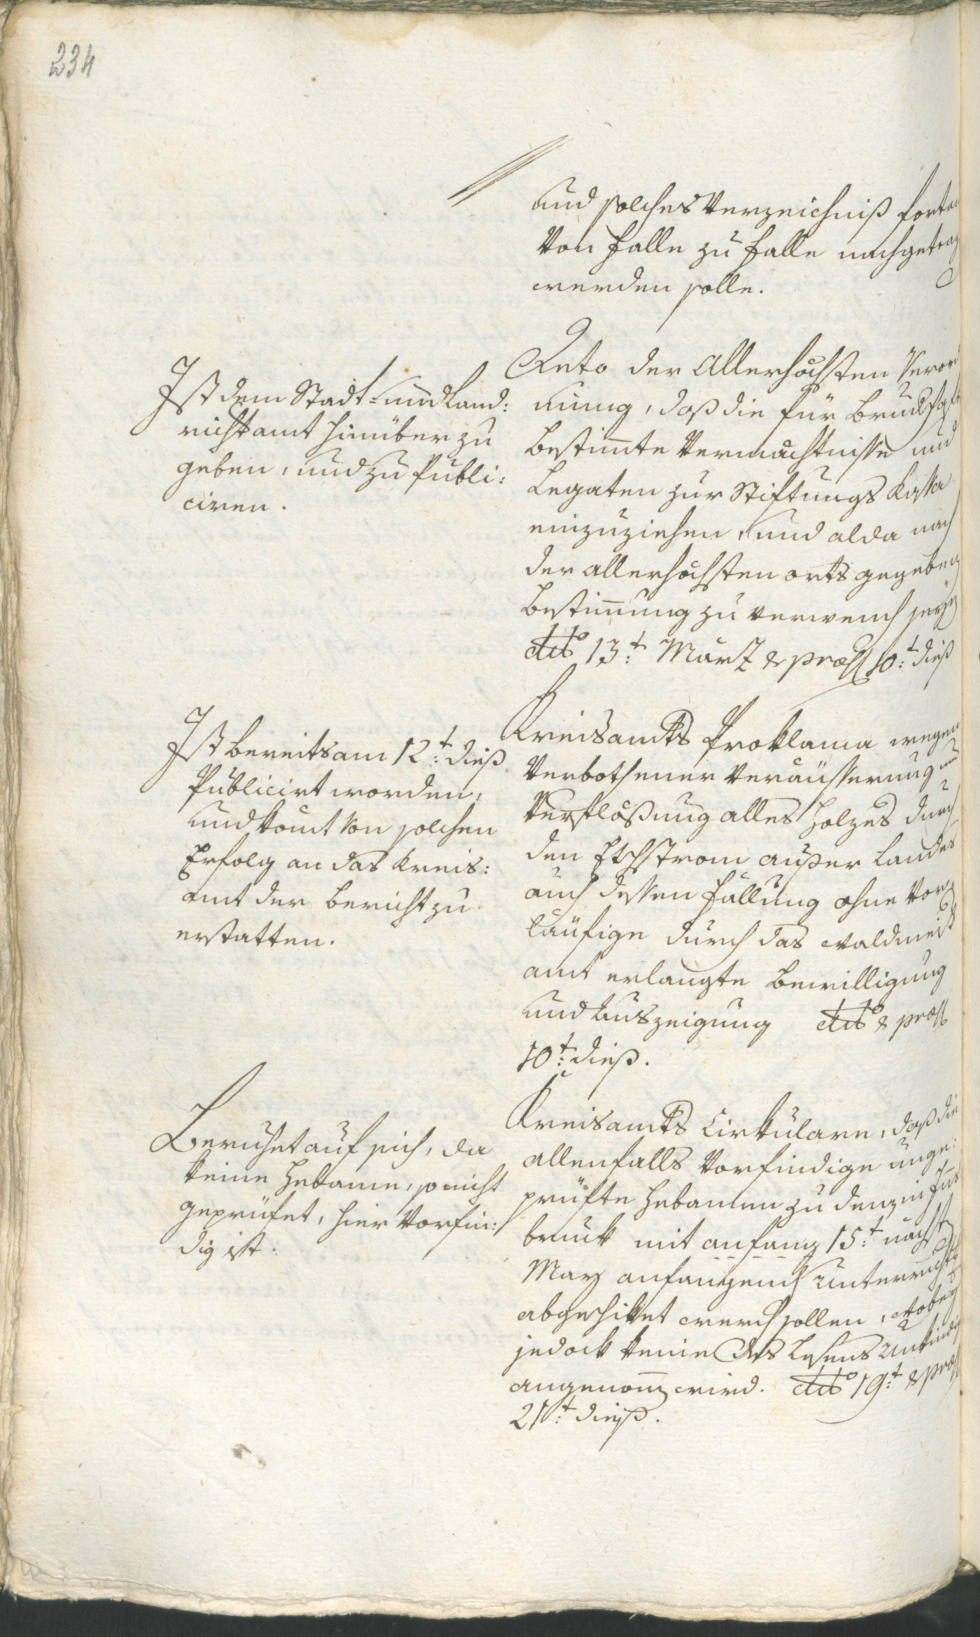 234
und solches Verzeichniß
Von Falle zu Falle
werden solle.
Ist dem Stadt- und Land:
richtamt hinüber zu
geben, und zu Publi:
ciren.
Dato der Allerhöchsten
nung, daß die für
bestim̄te Vermächtnisse und
Legaten zur Stiftungs Kassa
einzuziehen, und alda nach
der allerhöchsten orts gegeben
Bestim̄ung zu
dtto 13:t Märtz & præs 10:t dieß
Ist bereits am 12:t dieß
Publicirt worden,
und kom̄t von solchen
Erfolg an das Kreis:
amt der Bericht zu
erstatten.
Kreisamts Proklama wegen
Verbothener Veräusserung und
Verflößung alles Holzes durch
den Etschstrom ausser Landes
auch dessen Fällung ohne Vor
läufige durch das Waldmeist
amt erlangte Bewilligung
und Auszeigung dtto & præs
10:t dieß.
Beruhet auf sich, da
keine Hebame, so nicht
geprüfet, hier Vorfin:
dig ist.
Kreisamts Cirkulare, daß die
allenfalls Vorfindige unge:
prüfte Hebamen zu dem in Ins
bruck mit anfang 15:t nächst
May anfangend Unterricht
abgeschiket werd sollen, wobey
jedoch keine des Lesens Unkündig
angenom̄ wird. dtto 19:t & præs
21:t dieß.